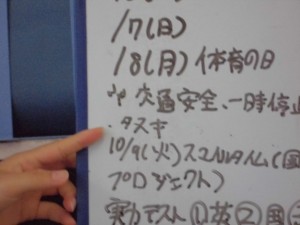 /7(日)
/8(月) 体育の日
交通安全、一時停止
・タスキ
10/9(火) スマイルタイム(国
プロジェクト)
実力テスト ①英②国③